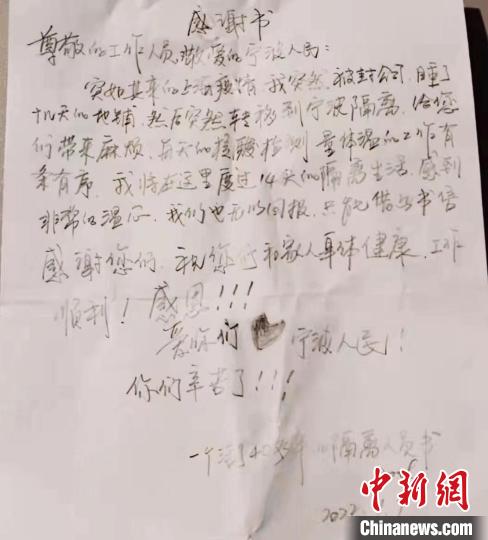 感谢书
尊敬的工作人员,敬爱的宁波人民:
突如其来的上海疫情,我突然被封公司,睡了
十几天的地铺,然后突然转移到宁波隔离,给您
们带来麻烦,每天的核酸检测,量体温的工作有
条有序,我将在这里度过14天的隔离生活,感到
非常的温心,我们也无以回报,只能借此书信
感谢您们,祝您们和家人身体健康,工作
顺利!感恩!!!
爱你们 宁波人民!!
你们辛苦了!!!
一个 隔离人员书
2022
中新网
Chinanews.com